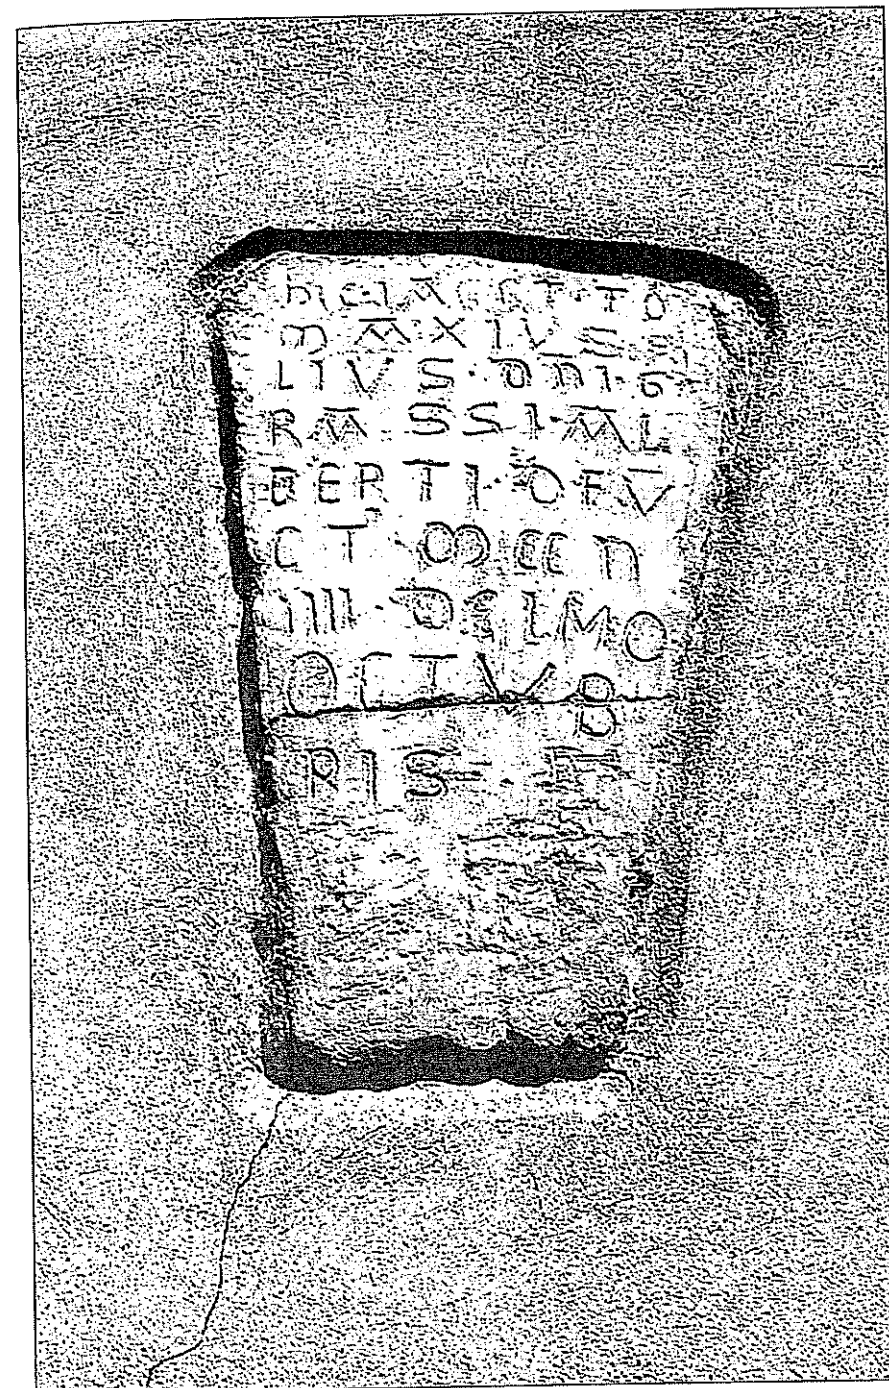 hIC·IACET·TO
MAXIVS
LIVS·DNI·G
RASSI·AL
BERTI·OFV
CT·MCCN
IIII·DE LMO
OCTVB
RIS